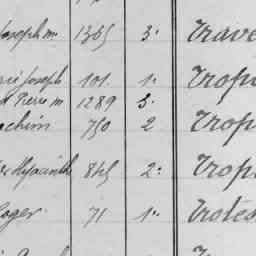 Joseph m 1365 3. Trave
Joseph 101. 1. Trop
Pierre m 1289 3.
achim 750 2 Trop
Hyacinth 845 2. Trop
Roger 71 1. Trotes